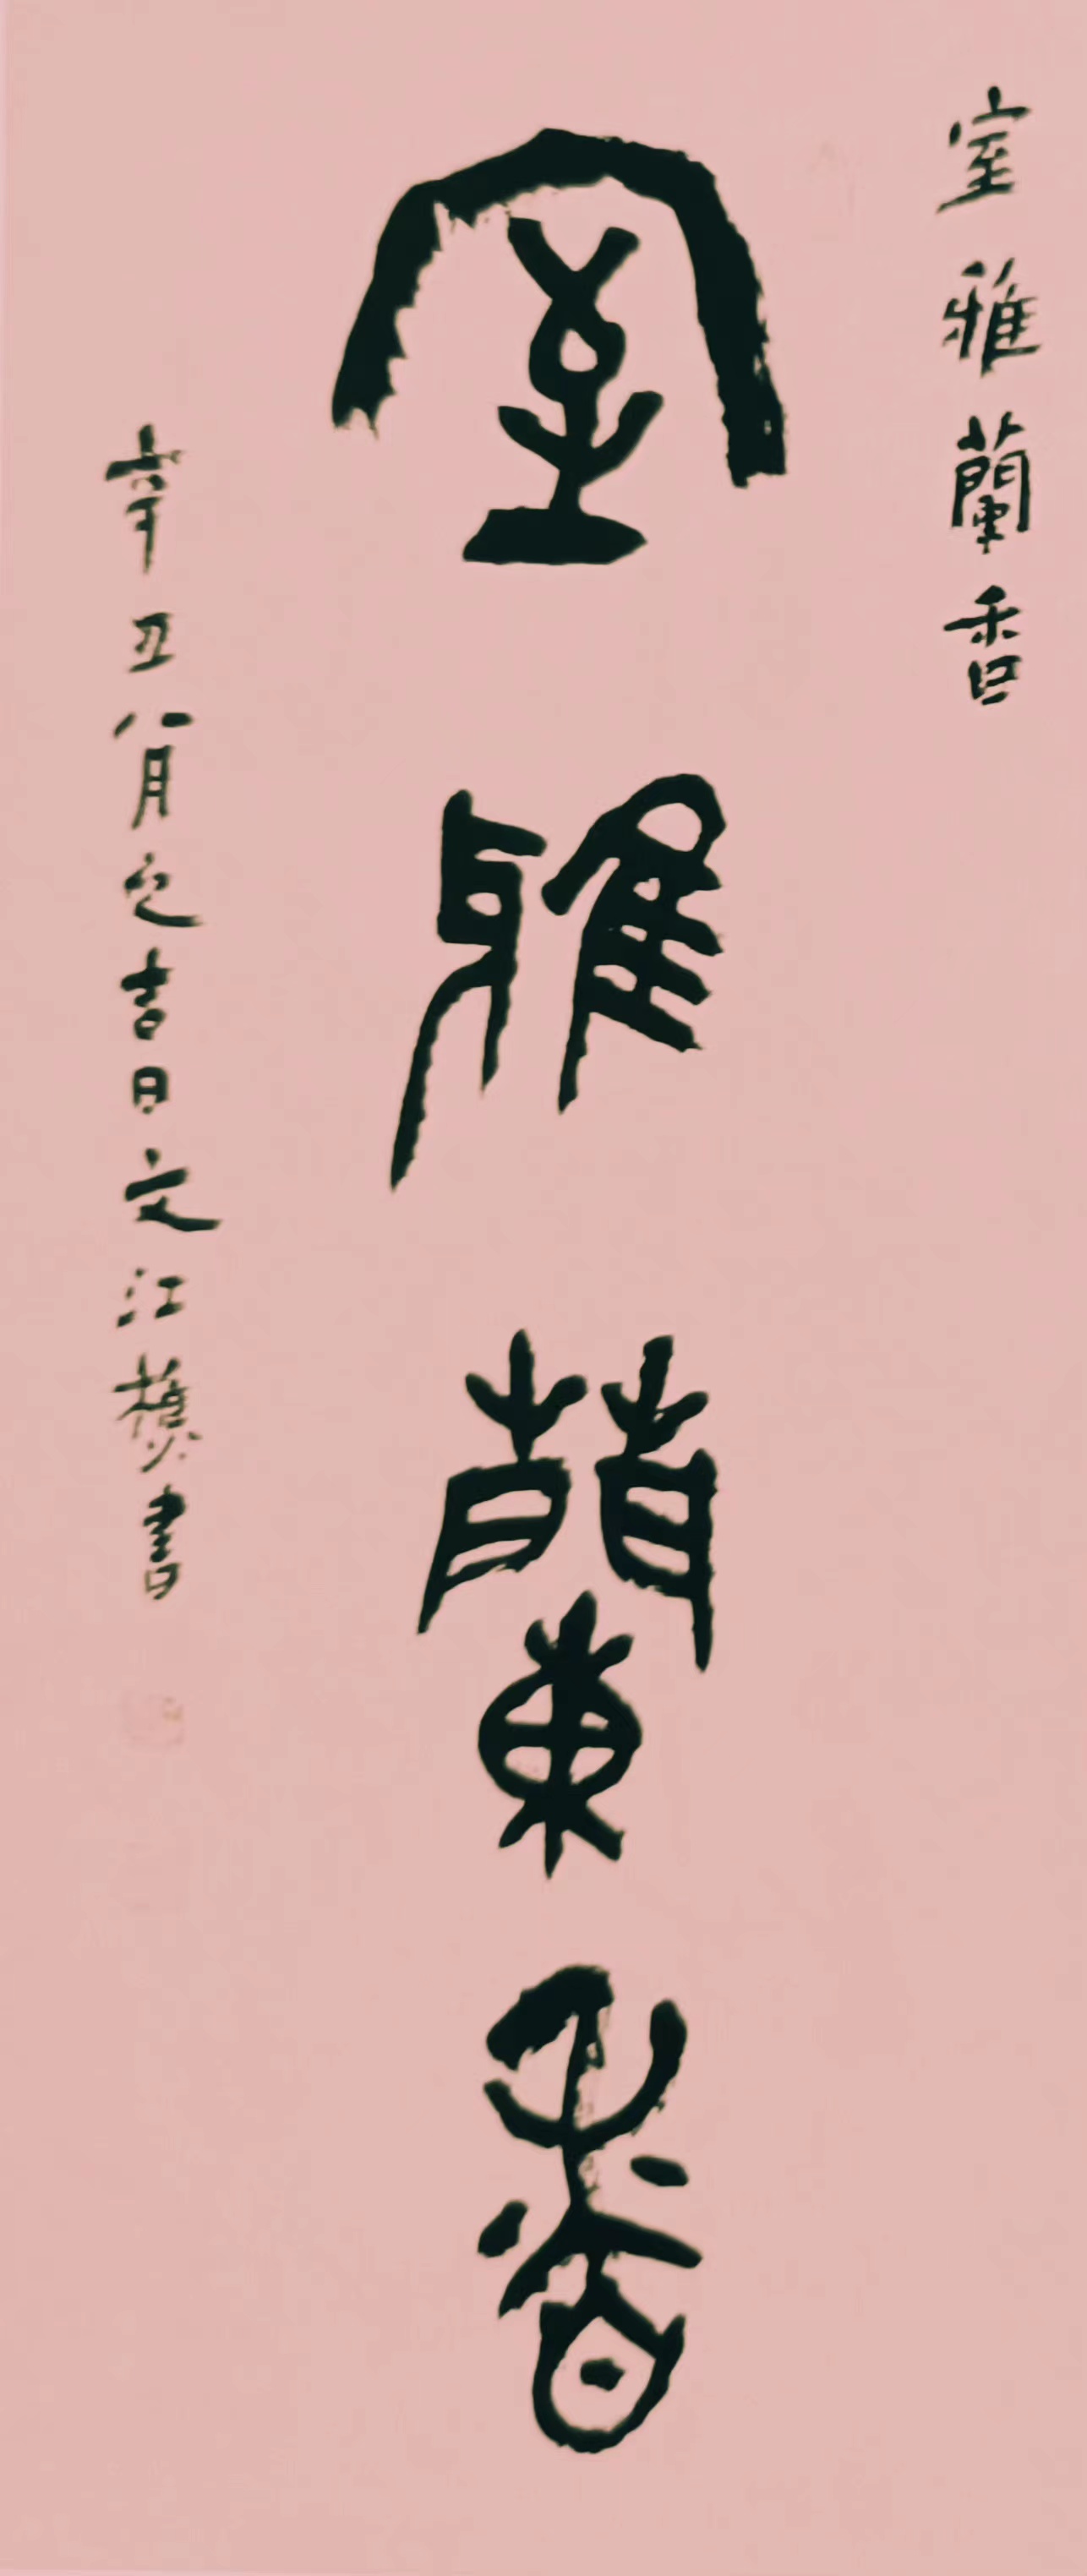 室雅蘭香
室雅蘭香
辛丑八月之吉日文江横書